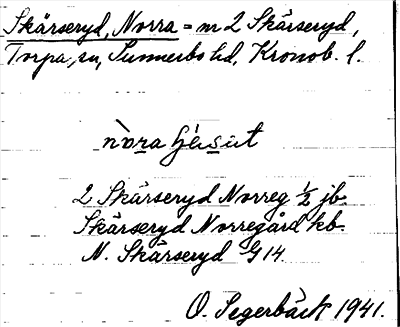 Skärseryd, Norra = m 2 Skärseryd,
Torpa, sn, Sunnerbo hd, Kronob. l.
nòra
2 Skärseryd Norreg ½ jb.
Skärseryd Norregård kb.
N. Skärseryd G14.
O. Segerbäck 1941.